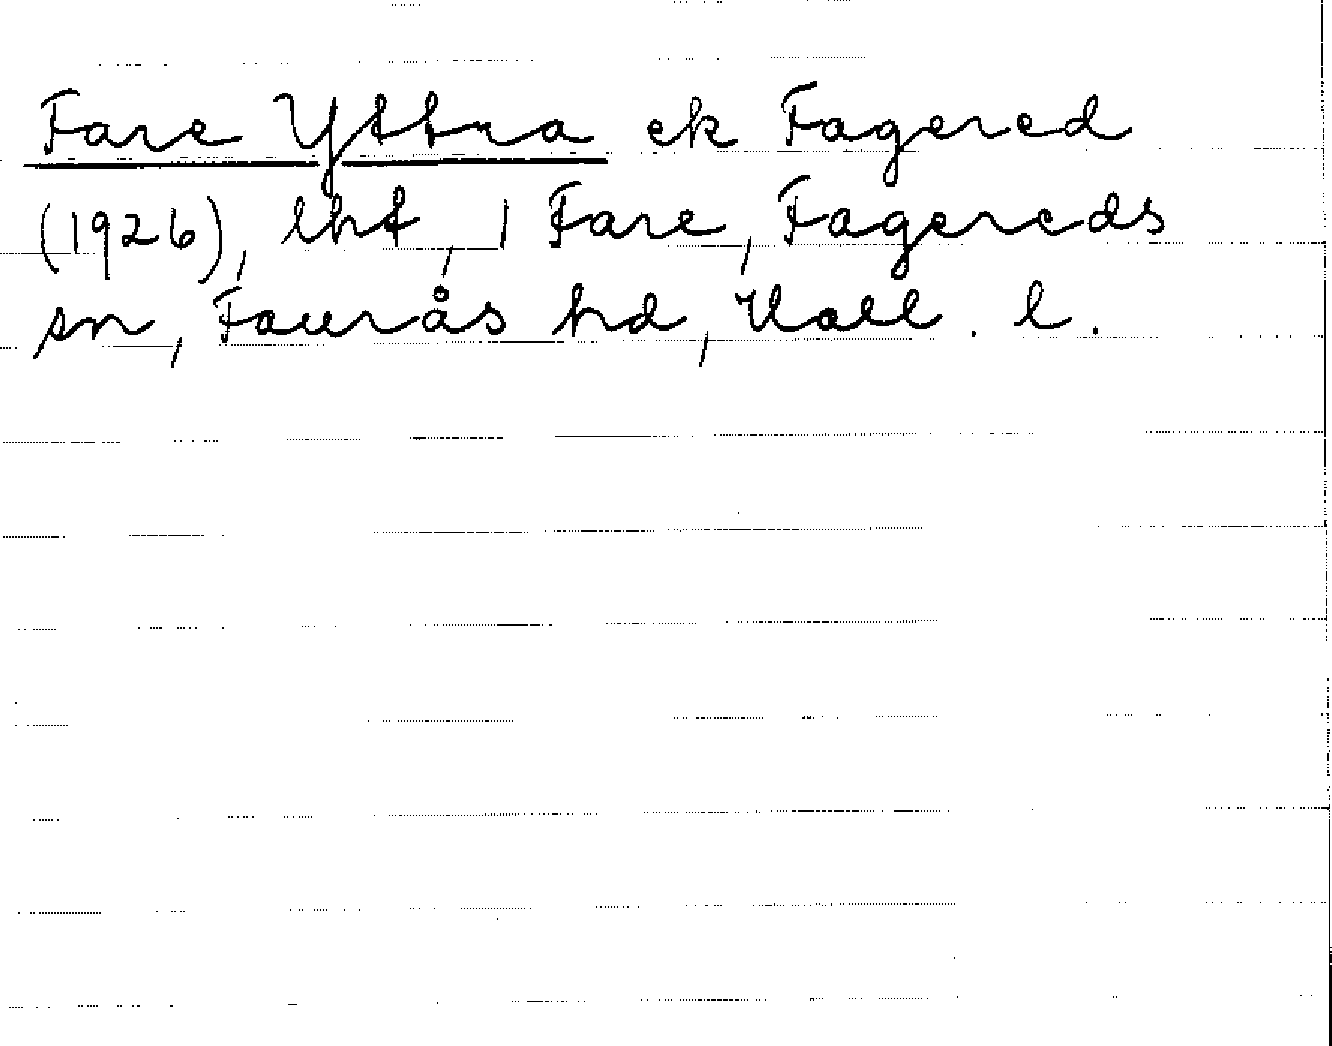 Fare Yttra ek Fagered
(1926), lht, 1 Fare, Fagereds
sn, Faurås hd, Hall. l.